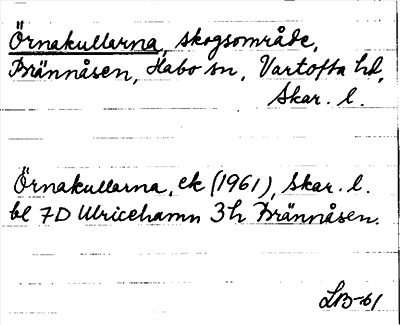 Örnakullarna, skogsområde,
Brännåsen, Habo sn, Vartofta hd,
Skar. l.
Örnakullarna, ek (1961), Skar. l.
bl 7D Ulricehamn 3h Brännåsen.
LB-61